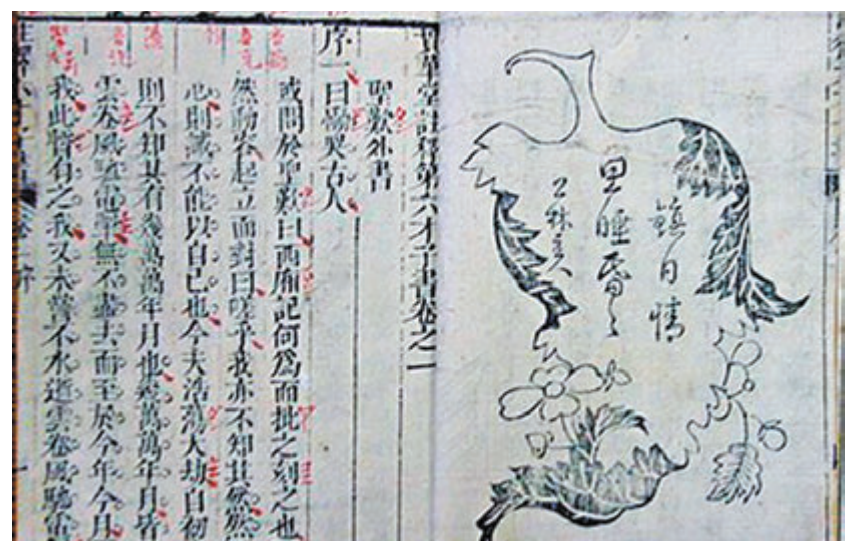 鎮日情
思睡昏〻
美人
貫華堂註釋第六才子書卷之一
聖歎外書
序一曰慟哭古人
或問於聖歎曰西廂記何爲而批之刻之也
然動容起立而對曰嗟乎我亦不知其然然
心則誠不能以自已也今夫浩蕩大劫自初
則不知其有幾萬萬年月也幾萬萬年月皆
雲卷風馳電掣無不盡去而至於今年今月
我此暫有之我又未嘗不水逝雲卷風馳電